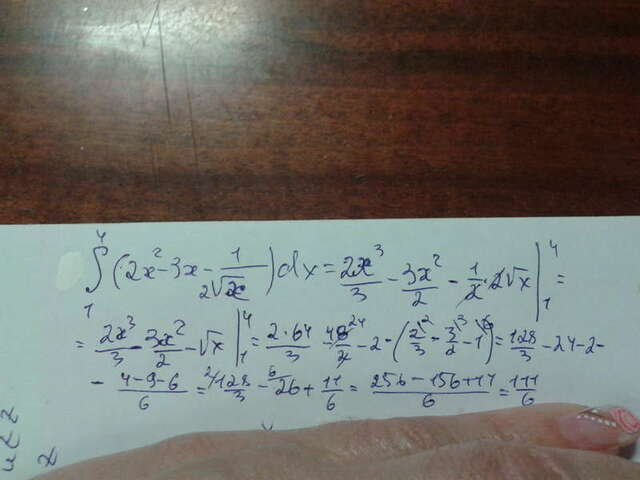 ∫₁⁴ (2x² - 3x - 1/(2√x)) dx = 2x³/3 - 3x²/2 - 1/2 · 2√x |₁⁴ =
= 2x³/3 - 3x²/2 - √x |₁⁴ = 2·64/3 - 48/2 24 - 2 - (2/3 - 3/2 - 1) = 128/3 - 24 - 2 -
- (4-9-6)/6 = 2/ 128/3 - 6/ 26 + 11/6 = (256 - 156 + 11)/6 = 111/6